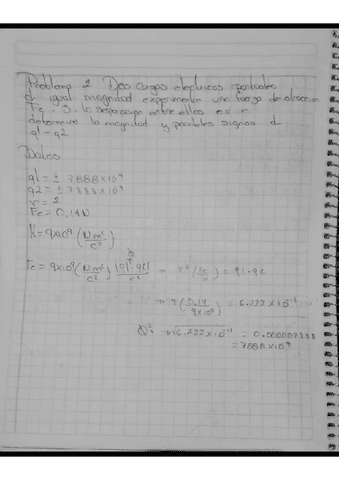 Problema 2 Dos cargas electricas puntuales
d igual magnitud experimentan una fuerza de atraccion
Fe . Si la separacion entre ellas es r
determine la magnitud y posibles signos d
q1 - q2
Datos
q1 = ± 7888x10⁹
q2 = ± 7888x10⁹
r = 2
Fe = 0.14N
K = 9x10⁹ (N m² / c²)
Fe = 9x10⁹ (N m² / c²) |q1 · q2| / r² = r² (Fe / k) = q1 · q2
4 (0.14 / 9x10⁹) = 6.222x10⁻¹¹
6.222x10⁻¹¹ = 0.000007888
= 7888x10⁹